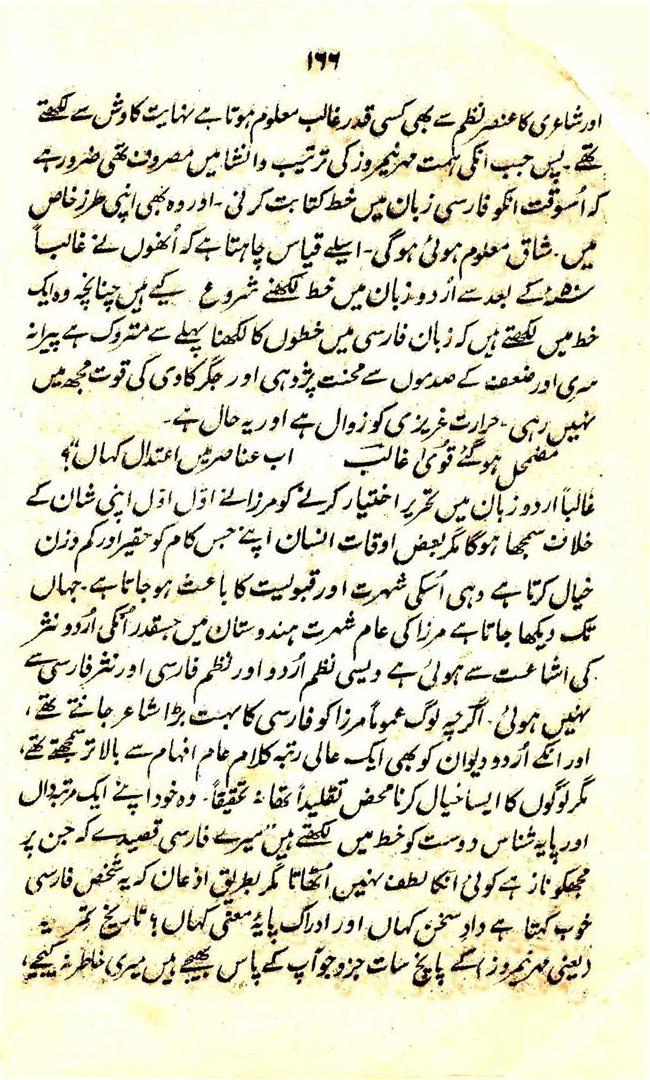 ۱۶۶
اور شاعری کا عنصر نظم سے بھی کسی قدر غالب معلوم ہوتا ہے نہایت کاوش سے لکھتے
تھے۔ پس جب انکی ہمت مہر نیمروز کی ترتیب و انشا میں مصروف تھی ضرور ہے
کہ اُسوقت انکو فارسی زبان میں خط کتابت کرنی۔ اور وہ بھی اپنی طرز خاص
میں۔ شاق معلوم ہوئی ہوگی۔ اسلیے قیاس چاہتا ہے کہ اُنھوں نے غالباً
۱۸۵۰ء کے بعد سے اُردو زبان میں خط لکھنے شروع کیے ہیں چنانچہ وہ ایک
خط میں لکھتے ہیں کہ زبان فارسی میں خطوں کا لکھنا پہلے سے متروک ہے پیرانہ
سری اور ضعف کے صدموں سے محنت پژوہی اور جگر کاوی کی قوت مجھ میں
نہیں رہی۔ حرارت غریزی کو زوال ہے اور یہ حال ہے۔
مضمحل ہوگئے قویٰ غالب اب عناصر میں اعتدال کہاں"؟
غالباً اردو زبان میں تحریر اختیار کرنے کو مرزا نے اوّل اوّل اپنی شان کے
خلاف سمجھا ہوگا مگر بعض اوقات انسان اپنے جس کام کو حقیر اور کم وزن
خیال کرتا ہے وہی اُسکی شہرت اور قبولیت کا باعث ہوجاتا ہے۔ جہاں
تک دیکھا جاتا ہے مرزا کی عام شہرت ہندوستان میں جسقدر اُنکی اُردو نثر
کی اشاعت سے ہوئی ہے ویسی نظم اُردو اور نظم فارسی اور نثر فارسی سے
نہیں ہوئی۔ اگرچہ لوگ عموماً مرزا کو فارسی کا بہت بڑا شاعر جانتے تھے،
اور انکے اُردو دیوان کو بھی ایک عالی رتبہ کلام عام افہام سے بالا تر سمجھتے تھے،
مگر لوگوں کا ایسا خیال کرنا محض تقلیداً تھا نہ تحقیقاً۔ وہ خود اپنے ایک مرتبہ داں
اور پایہ شناس دوست کو خط میں لکھتے ہیں "میرے فارسی قصیدے کہ جن پر
مجھکو ناز ہے کوئی انکا لطف نہیں اُٹھاتا مگر بطریق اذعان کہ یہ شخص فارسی
خوب کہتا ہے داد سخن کہاں اور ادراک پایۂ معنی کہاں؟ تاریخ
(یعنی مہر نیمروز) کے پانچ سات جزو جو آپ کے پاس بھیجے ہیں میری خاطر نہ کیجیے،